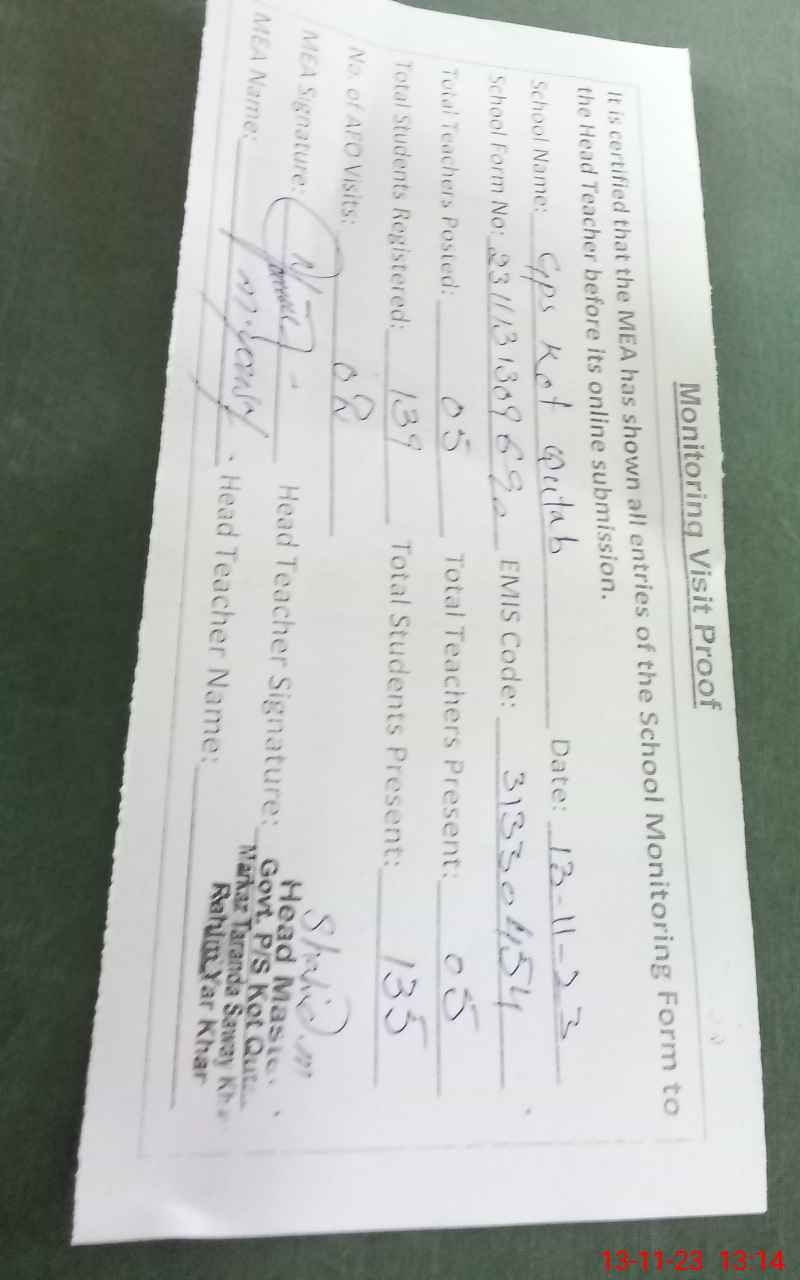 Monitoring Visit Proof
It is certified that the MEA has shown all entries of the School Monitoring Form to
the Head Teacher before its online submission.
School Name: Gps Kot Qutab Date: 13-11-23
School Form No: EMIS Code: 31330454
Total Teachers Posted: 05 Total Teachers Present: 05
Total Students Registered: 139 Total Students Present: 135
No. of AEO Visits: 02
MEA Signature: Head Teacher Signature:
MEA Name: Head Teacher Name:
Head Master
Govt. P/S Kot
Markaz Taranda Saway
Rahim Yar Khan
13-11-23 13:14